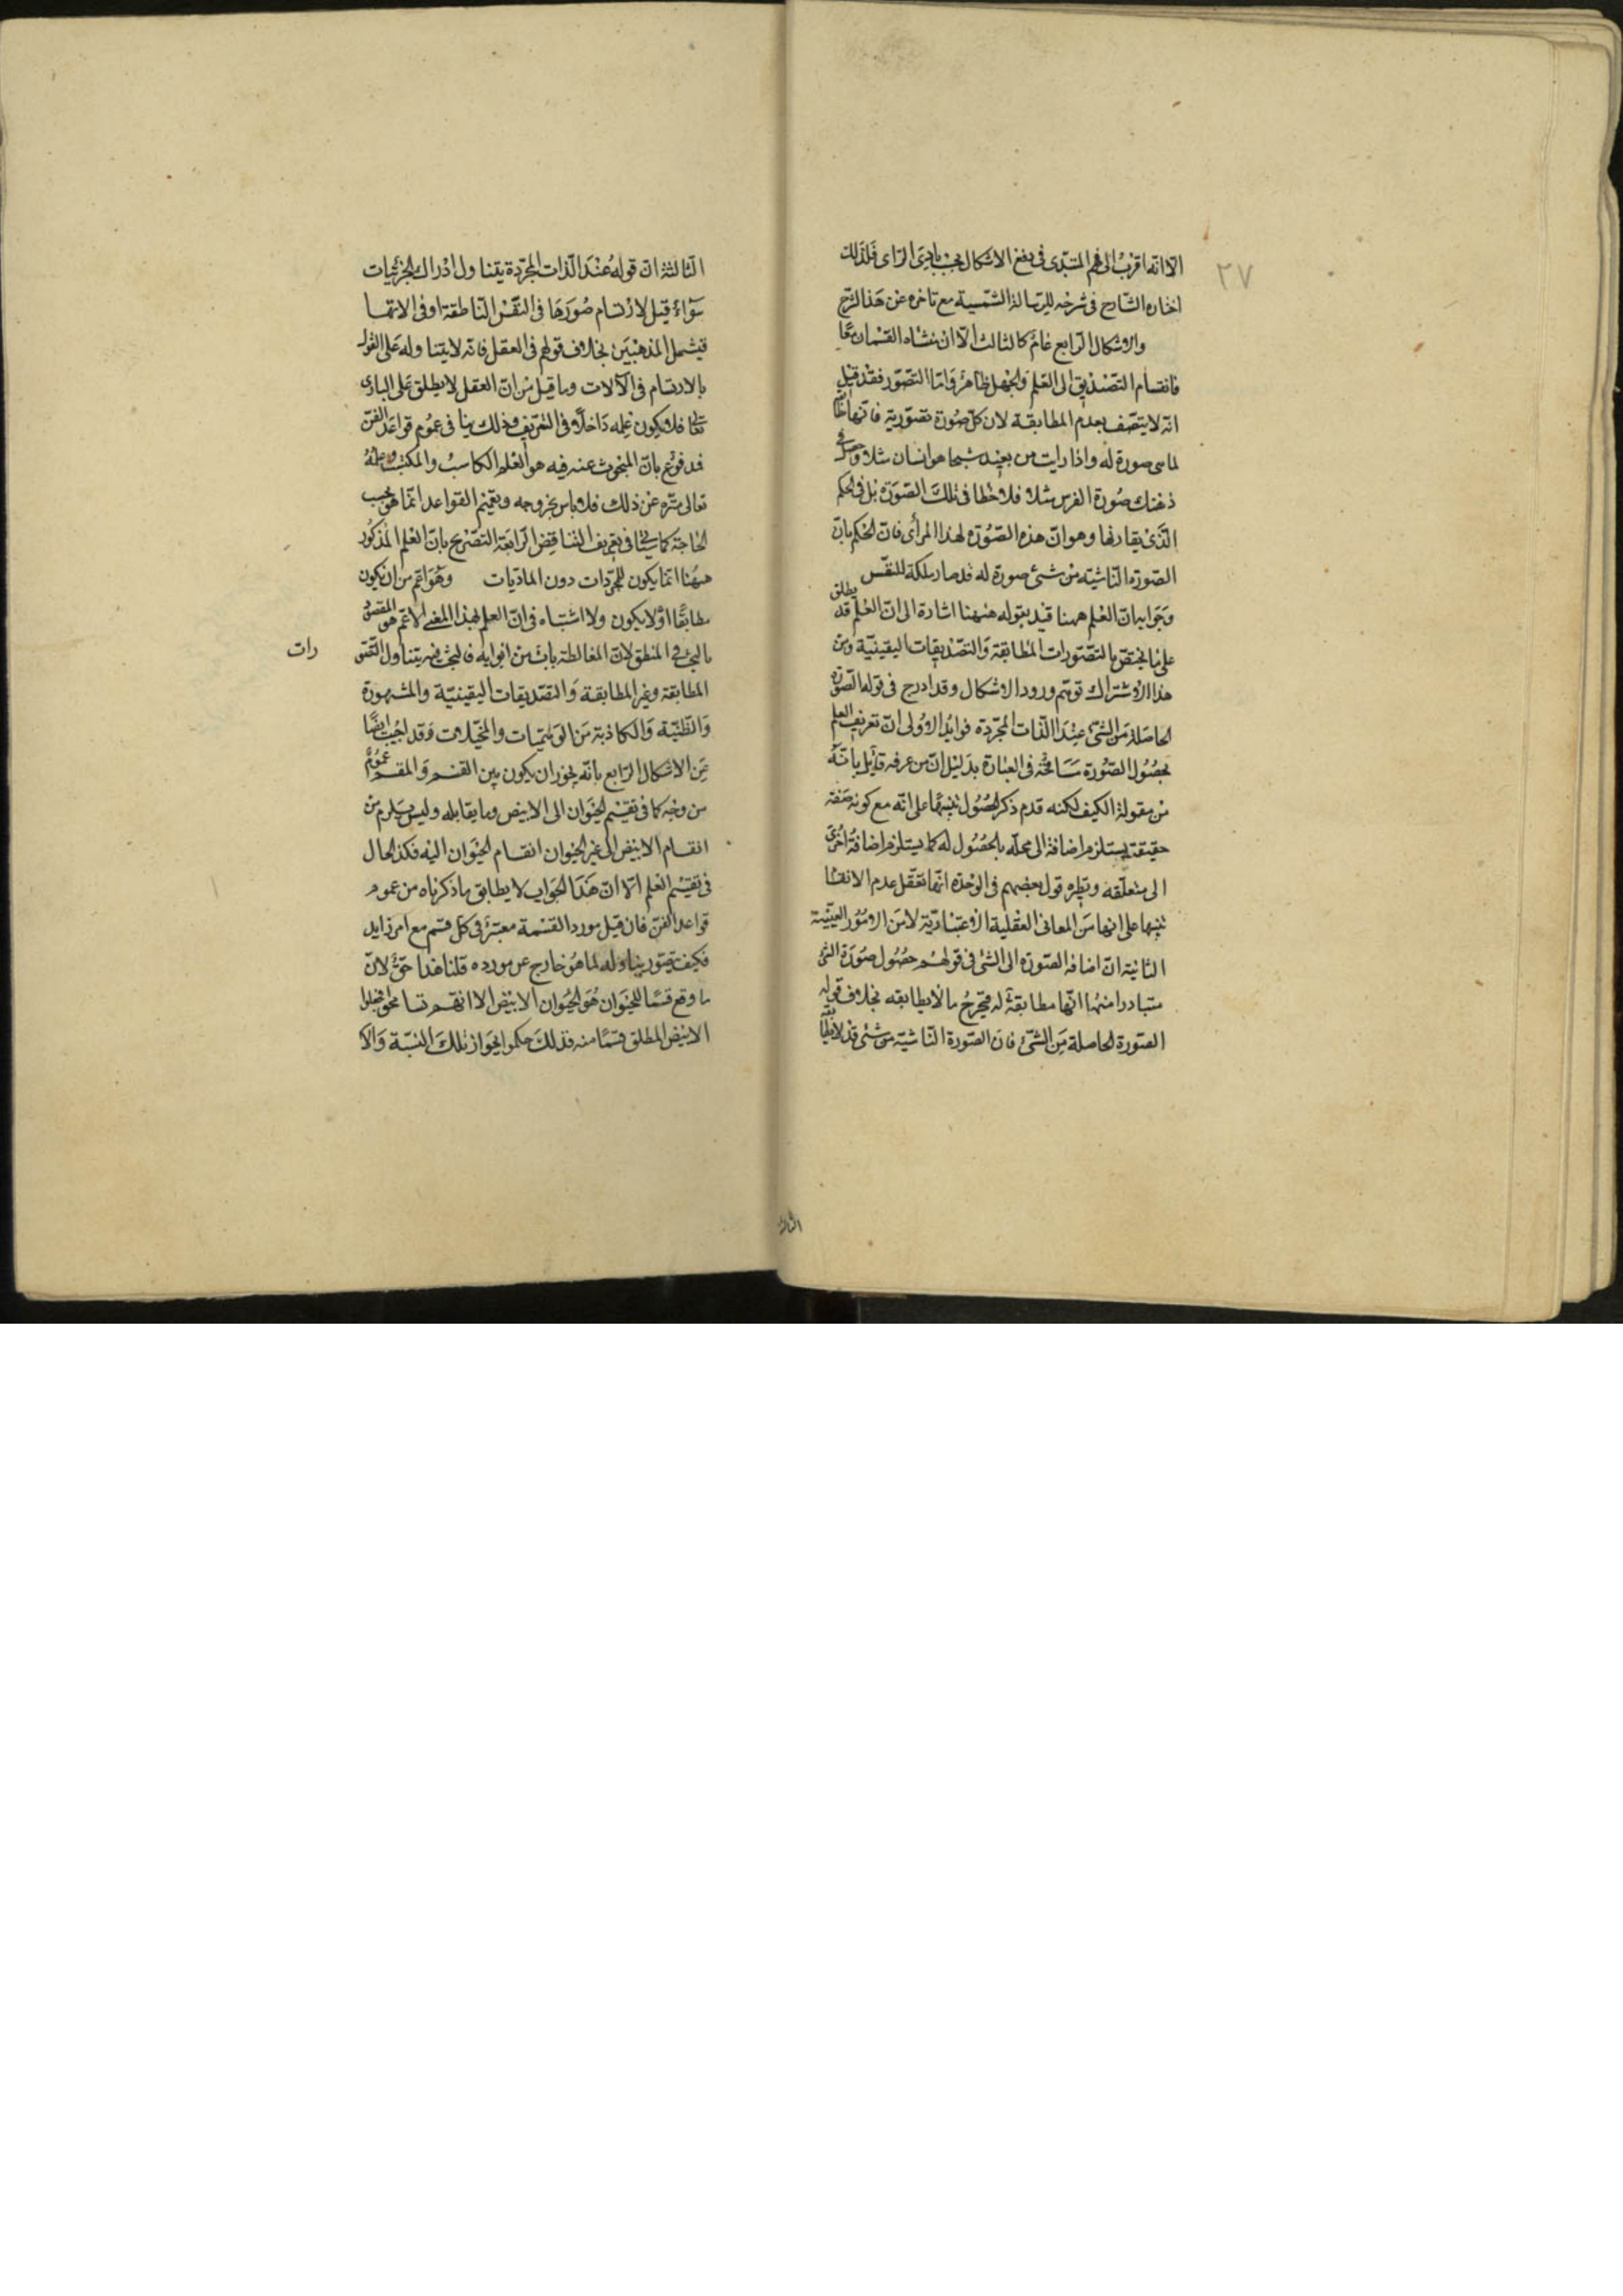 ٢٧
الا انه اقرب الى فهم المبتدى فى دفع الاشكال بحسب بادى الراى فلذلك
اختاره الشارح فى شرحه للرسالة الشمسية مع تاخره عن هذا الشرح
والاشكال الرابع عام كالثالث الا ان منشاه القسمان معا
فانقسام التصديق الى العلم والجهل ظاهر واما التصور فقد قيل
انه لا يتصف بعدم المطابقة لان كل صورة تصورية فانها
لما هى صورة له واذا رايت من بعيد شبحا هو انسان مثلا وحصل فى
ذهنك صورة الفرس مثلا فلا خطا فى تلك الصورة بل فى الحكم
الذى يقارنها وهو ان هذه الصورة لهذا المرأى فان الحكم بان
الصورة الناشية من شئ صورة له قد صار ملكة للنفس
وجوابه ان العلم ههنا قيد بقوله ههنا اشارة الى ان العلم قد يطلق
على ما يختص بالتصورات المطابقة والتصديقات اليقينية ومن
هذا الاشتراك توهم ورود الاشكال وقد ادرج فى قوله الصورة
الحاصلة من الشئ عند الذات المجردة فوايد الاولى ان تعريف العلم
بحصول الصورة مسامحة فى العبارة بدليل ان من عرفه قايل بانه
من مقولة الكيف لكنه قدم ذكر الحصول تنبيها على انه مع كونه صفة
حقيقة يستلزم اضافة الى محله بالحصول له كما يستلزم اضافة اخرى
الى متعلقه ونظيره قول بعضهم فى الوحدة انها تعقل عدم الانقسام
تنبيها على انها من المعانى العقلية الاعتبارية لا من الامور العينية
الثانية ان اضافة الصورة الى الشئ فى قولهم حصول صورة الشئ
متبادر منها انها مطابقة له فيخرج ما لا يطابقه بخلاف قوله
الصورة الحاصلة من الشئ فان الصورة الناشية من شئ قد لا يطابقه
الثالثة
الثالثة ان قوله عند الذات المجردة يتناول ادراك الجزئيات
سواء قيل لارتسام صورها فى النفس الناطقة او فى الاتها
فيشمل المذهبين بخلاف قولهم فى العقل فانه لا يتناوله على القول
بالارتسام فى الآلات وما قيل من ان العقل لا يطلق على البارى
تعالى فلا يكون علمه داخلا فى التعريف وذلك ينافى عموم قواعد الفن
فمدفوع بان المبحوث عنه فيه هو العلم الكاسب والمكتسب وعلمه
تعالى منزه عن ذلك فلا باس بخروجه وتعميم القواعد انما هو بحسب
الحاجة كما سياتى فى تعريف التناقض الرابعة التصريح بان العلم المذكور
ههنا انما يكون للمجردات دون الماديات وهو اعم من ان يكون
مطابقا او لا يكون ولا اشتباه فى ان العلم بهذا المعنى الاعم هو المقصود
بالبحث فى المنطق لان المغالطة باب من ابوابه فالبحث فيه يتناول التصورات
المطابقة وغير المطابقة والتصديقات اليقينية والمشهورة
والظنية والكاذبة من الوهميات والمخيلات وقد اجيب ايضا
عن الاشكال الرابع بانه يجوز ان يكون بين القسم والمقسم عموم
من وجه كما فى تقسيم الحيوان الى الابيض وما يقابله وليس يلزم من
انقسام الابيض الى غير الحيوان انقسام الحيوان اليه فكذا الحال
فى تقسيم العلم الا ان هذا الجواب لا يطابق ما ذكرناه من عموم
قواعد الفن فان قيل مورد القسمة معتبر فى كل قسم مع امر زايد
فكيف يتصور تناوله لما هو خارج عن مورده قلنا هذا حق لان
ما وقع قسما للحيوان هو الحيوان الابيض الا انهم تسامحوا فجعلوا
الابيض المطلق قسما منه فذلك حكموا بجواز تلك النسبة والا